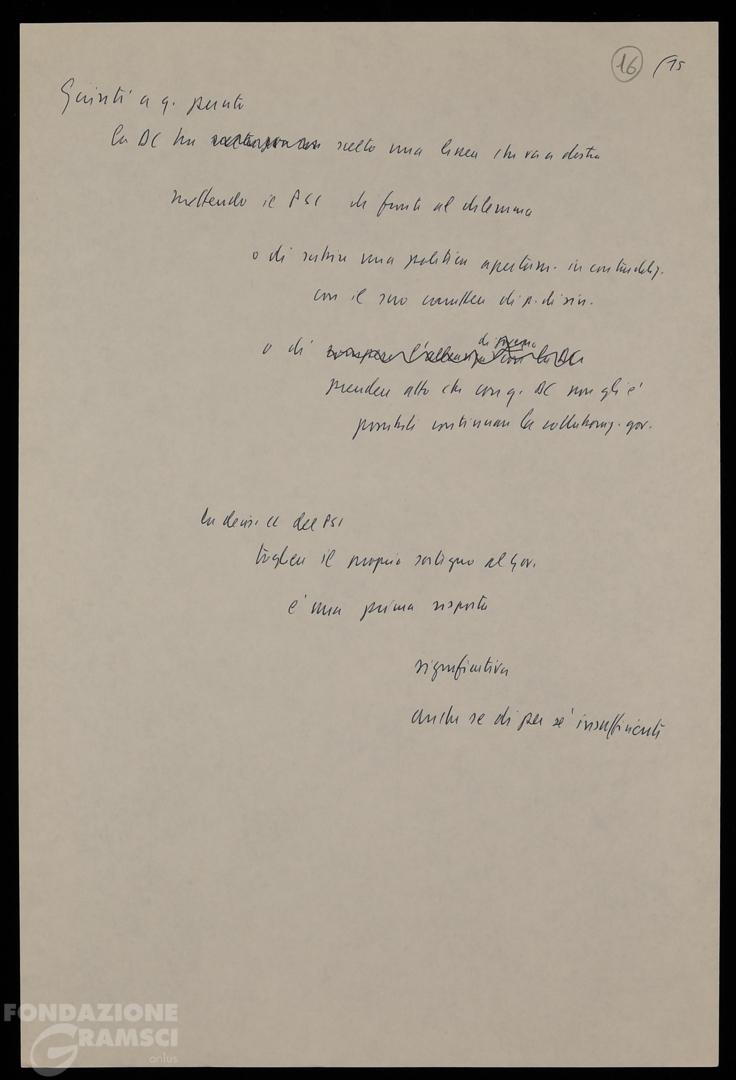 16 /15
Giunti a q. punto
la DC ha scelto una linea che va a destra
mettendo il PSI di fronte al dilemma
o di subire una politica apertam. in contraddiz.
con il suo carattere di p. di sin.
o di di governo
prendere atto che con q. DC non gli è
possibile continuare la collaboraz. gov.
la decis. del PSI
togliere il proprio sostegno al gov.
è una prima risposta
significativa
anche se di per sé insufficiente
FONDAZIONE
GRAMSCI
onlus